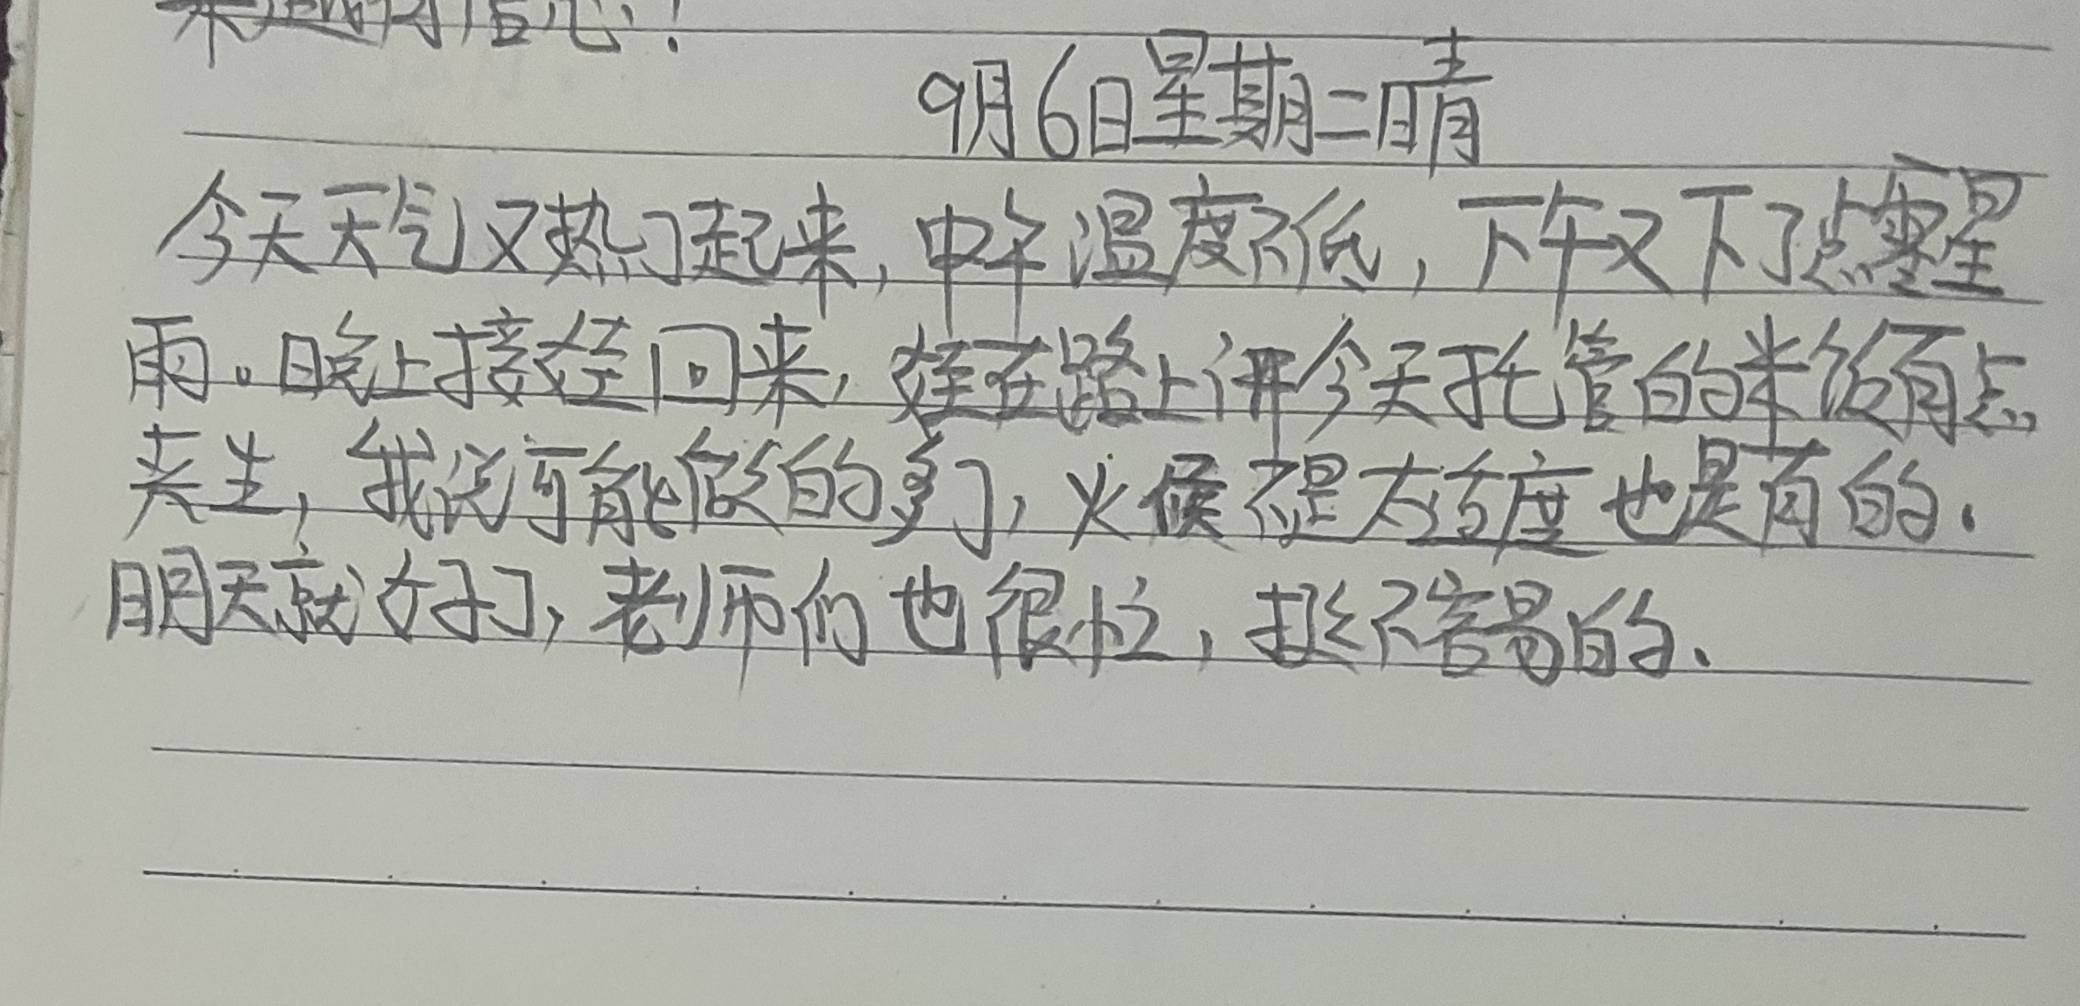 来越有信心!
9月6日星期二晴
今天天气又热了起来,中午温度不低,下午又下了点零星
雨。晚上接娃回来,娃在路上讲今天托管的米饭有点
夹生,我说可能做的多了,火候不是太适度也是有的.
明天就好了,老师们也很忙,挺不容易的.